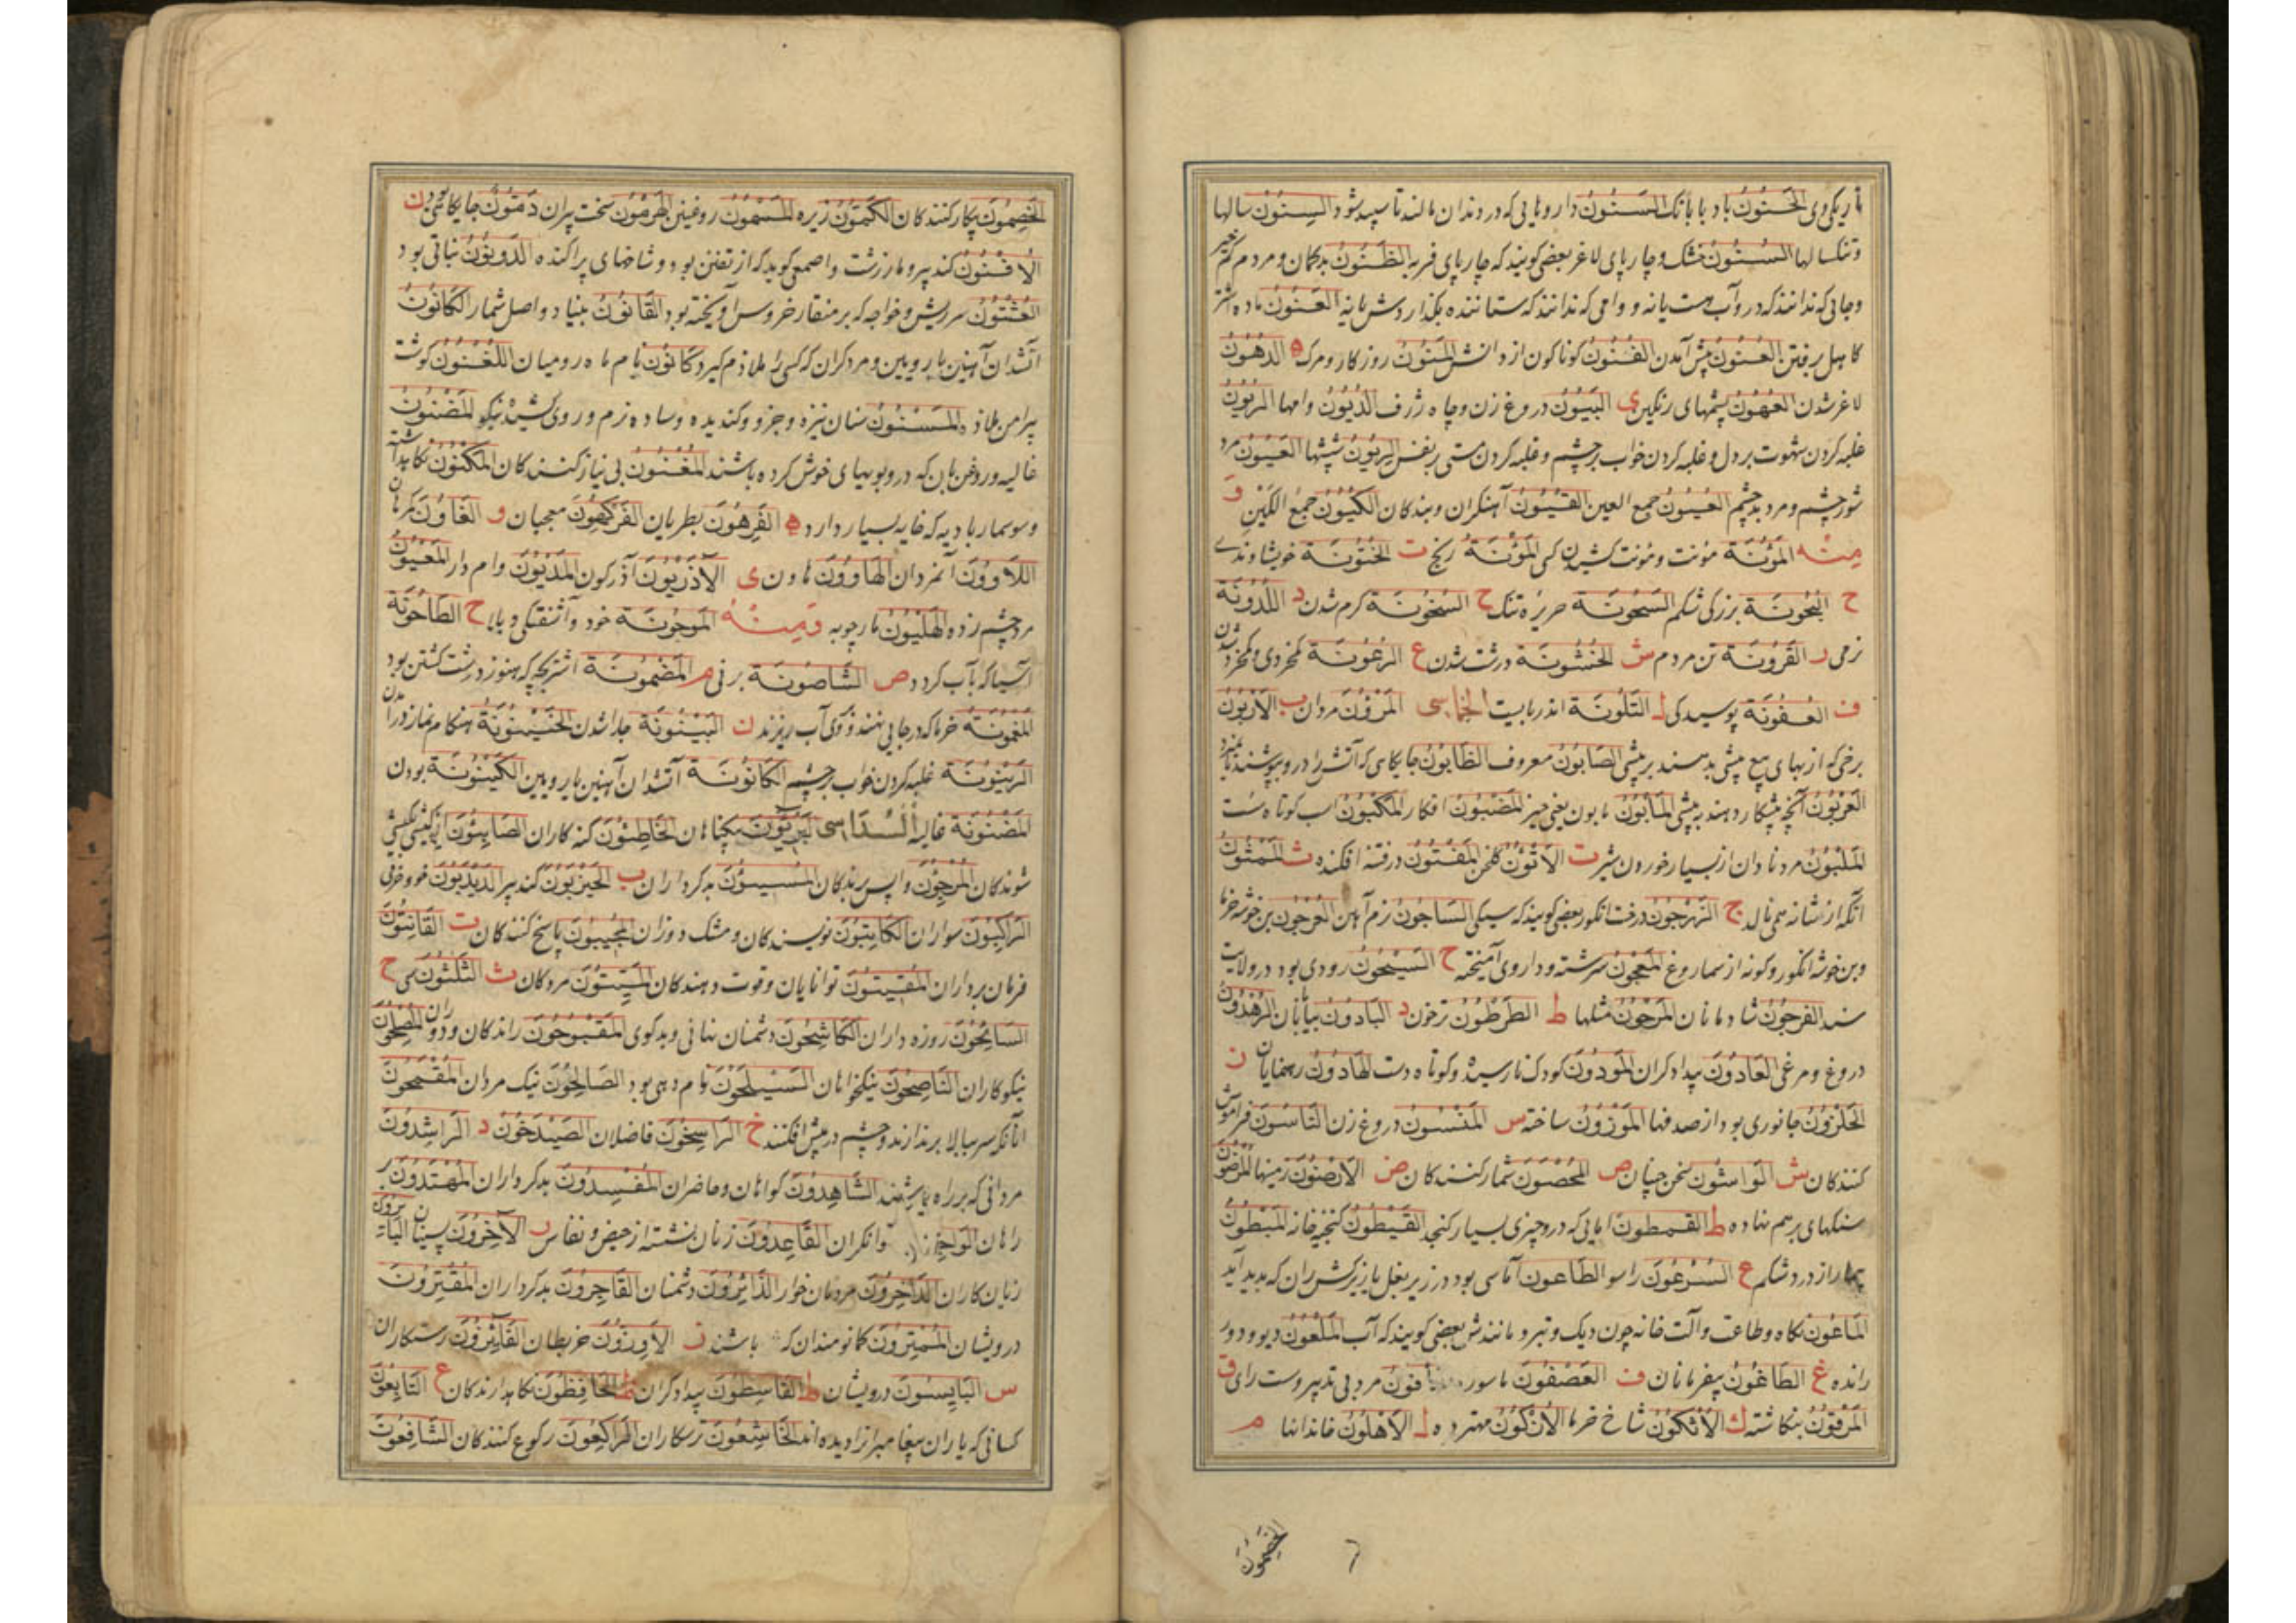 تاریکی وی الحَنُونُ باد با بانک السَنُونُ داروهایی که در دندان مالند تا سپید شود السِنُونَ سالها
و تنکسالها السُنُونُ خشک و چارپای لاغر بعضی کویند که چارپای فربه الظَنُونُ بدکمان و مردم کم خیر
و جایی که ندانند که درو آب هست یا نه و وامی که ندانند که ستاننده بکذاردش یا نه العَنُونُ ماده اشتر
کاهل برفتن العُنُونُ پیش آمدن الفُنُونُ کوناکون از دانش المَنُونُ روزکار و مرک ه الدهُونُ
لاغر شدن العُهُونُ پشمهای رنکین ی البَیُونُ دروغ زن و چاه ژرف الدُیُونُ وامها الرُیُونُ
غلبه کردن شهوت بر دل و غلبه کردن خواب بر چشم و غلبه کردن مستی بر نفس الریُونُ ششها العَیُونُ مرد
شورچشم و مرد بدچشم العُیُونُ جمع العین القُیُونُ آهنکران و بندکان الکُیُونُ جمع الکَیْنِ وَ
مِنْهُ المَؤُنَة مؤنت و مؤنت کشیدن کسی المَؤْنَةُ رنج ت الخُتُونَة خویشاوندی
ح البُجُونَة بزرکی شکم السَخُونَة حریره تنک خ السُخُونَة کرم شدن د اللُدُونَة
نرمی ر القَرُونَة تن مردم ش الخُشُونَة درشت شدن ع الرُعُونَة کم خردی و کم خرد شدن
ف العُفُونَة پوسیدکی ل التَلُونَة اندربایست الخماسی المَرْؤُنَ مردان ب الاَرَبُونُ
برخی که از بهای بیع پیش بدهند بر پیشی الصَابُونُ معروف الظَابُونُ جایکاهی که آتش را درو بپوشند تا نمیرد
العَرَبُونُ آنچه پیشکار دهند به پیشی المَأبُونُ مابون یعنی حیز المَضبُونُ افکار المَکبُونُ اسب کوتاه دست
المَلبُونُ مرد نادان از بسیار خوردن شیر ت الاَتُونُ کلخن المَفتُونُ در فتنه افکنده ث المَمثُونُ
آنکه از مثانه همی نالد ج الزَرَجُونُ درخت انکور بعضی کویند که سیکی السَاجُونُ نرم آهن العُرجُونُ بن خوشه خرما
و بن خوشه انکور و کونه از سماروغ المَعجُونُ سرشته و داروی آمیخته ح السَیحُونُ رودی بود در ولایت
سند الفَرِحُونُ شادمانان ط الطَرطُونُ ترخون د البَادُونَ بیابانیان
دروغ و مرغی العَادُونَ بیدادکران المَودُونَ کودک نارسیده و کوتاه دست الهَادُونُ رهنمایان ز
الحَلَزُونُ جانوری بود از صدفها المَوزُونُ ساخته س دروغ زن النَاسُونَ فراموش
کنندکان ش الوَاشُونَ سخن چینان ص المُحصُونَ شمار کنندکان ض الاَرَضُونَ زمینها المَرضُونُ
سنکهای بر هم نهاده ط القَیطُونُ کنجینه خانه المَبطُونُ
بیمار از درد شکم ع السُرعُونَ راسو الطَاعون آماسی بود در زیر بغل یا زیر کش ران که بدید آید
المَاعُونَ زکاه و طاعت و آلت خانه چون دیک و تبر و مانندش بعضی کویند که آب المَلعُونُ دیو و دور
رانده غ الطَاغُونُ بیفرمانان ف العَصفُونَ المأفُونُ مرد بی تدبیر و سست رای ق
المَرقُونُ بنکاشته ک الاَثکُونُ شاخ خرما مهتر ده ل الاَهلُونُ خاندانها م
الخَصِمُونَ
الخَصِمُونَ پیکار کنندکان الکَمُّونُ زیره المَسمُونُ روغنین الهَرِمُونَ سخت پیران دَمُّونُ جایکاهی بود ن
الاُفنُونُ کنده پیر و مار زشت و اصمعی کوید که از تفنن بود و شاخهای پراکنده الذؤنُونُ نباتی بود
العُثنُونُ سر ریش و خواجه که بر منقار خروس آویخته بود القَانُونُ بنیاد و اصل شمار الکَانُونُ
آتشدان آهنین یا رویین و مرد کران که کسی را ملازم کیرد کَانُونُ نام ماه رومیان اللُغنُونُ کوشت
پیرامن ملازه المَسنُونُ سنان نیزه و جزو و کندیده و ساده نرم و روی کشیده نیکو المَضنُونُ
غالیه و روغن بان که درو بویهای خوش کرده باشند المُغنُونَ بی نیاز کنندکان المَکنُونُ نکاه داشته
و سوسمار بادیه که خایه بسیار دارد ه الفَرِهُونَ بطریان الفَکِهُونَ معجبان و الغَاوُنَ کمراهان
اللَاؤُونَ آنمردان الهَاوُونُ هاون ی الآذَریُونُ آذرکون المَدیُونُ وام دار المَعیُونُ
مرد چشم زده الهِلیَونُ مارچوبه وَمِنْهُ المَوجُونَة خود و آشفتکی و بالا ح الطَاحُونَة
آسیا که بآب کردد ص الشَاصُونَة برنی م المَضمُونَة اشتر بچه که هنوز در پشت کشتن بود
المَغمُونَة خرما که در جایی نهند و کوی آب ریزند ن البَینُونَة جدا شدن الحَینُونَة هنکام نماز در آمدن
الرَینُونَة غلبه کردن خواب بر چشم الکَانُونَة آتشدان آهنین یا رویین الکَینُونَة بودن
المَضنُونَة غالیه السُداسی البَرِیؤُن بیکناهان الخَاطِئُونَ کنه کاران الصَابِئُونَ از کیشی بکیشی
شوندکان المُرجَؤُنَ واپس بردکان المُسیئُونَ بدکرداران ب الحَیزَبُونُ کنده پیر الدَیدَبُونُ خو و خرفی
الرَاکِبُونَ سواران الکَاتِبُونَ نویسندکان و مشک دوزان المُجیبُونَ پاسخ کنندکان ت القَانِتُونَ
فرمان برداران المُقیتُونَ توانایان و قوت دهندکان المَیِّتُونَ مردکان ث الثَلثُونَ سی ح
السَائِحُونَ روزه داران الکَاشِحُونَ دشمنان نهانی و بدکوی المَقبُوحُونَ راندکان و دوران المُصلِحُونَ
نیکوکاران النَاصِحُونَ نیکخواهان السَیلَحُونُ نام دهی بود الصَالِحُونَ نیک مردان المُقمَحُونَ
آنانکه سر ببالا بر ندارند و چشم در پیش افکنند خ الرَاسِخُونَ فاضلان الصَیدَخُونُ د الرَاشِدُونَ
مردانی که بر راه باشند الشَاهِدُونَ کواهان و حاضران المُفسِدُونَ بدکرداران المُهتَدُونَ بر
راهان الوَاجِدُونَ توانکران القَاعِدُونَ زنان نشسته از حیض و نفاس ر الآخِرُونَ پسینیان
زیان کاران الدَاخِرُونَ مردمان خوار الذَائِرُونَ دشمنان الفَاجِرُونَ بدکرداران المُقتِرُونَ
درویشان المُمتَرُونَ کمانومندان که باشند ز الاِوَزُّونَ خربطان الفَائِزُونَ رستکاران
س البَایِسُونَ درویشان ط القَاسِطُونَ بیدادکران ظ الحَافِظُونَ نکاهدارندکان ع التَابِعُونَ
کسانی که یاران پیغامبر را دیده اند الخَاشِعُونَ ترسکاران الرَاکِعُونَ رکوع کنندکان الشَافِعُونَ